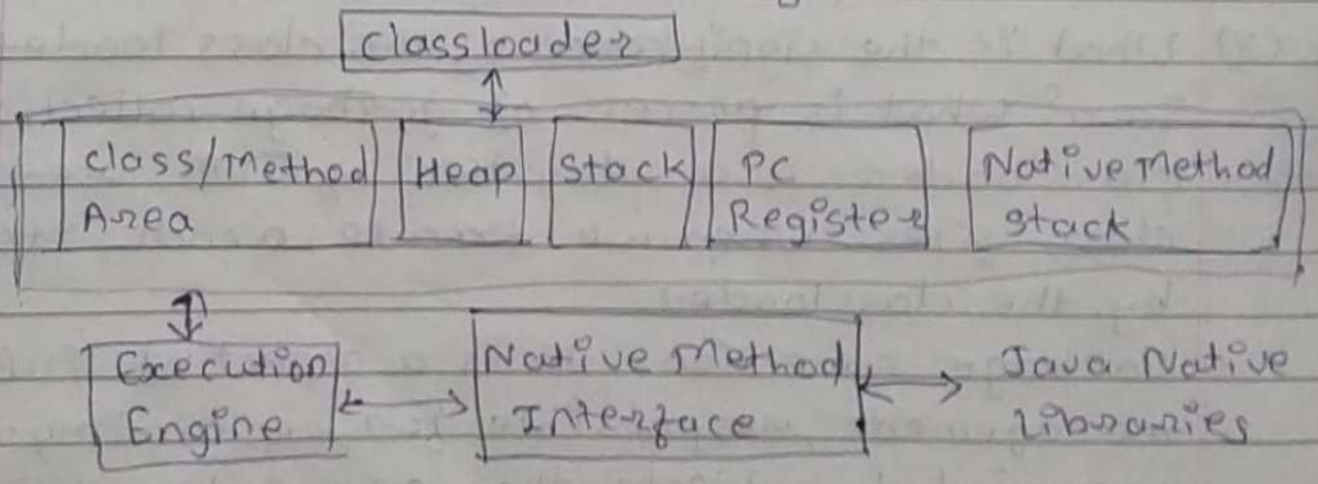 Classloader
class/Method Area
Heap
Stack
PC Register
Native Method Stack
Execution Engine
Native Method Interface
Java Native Libraries